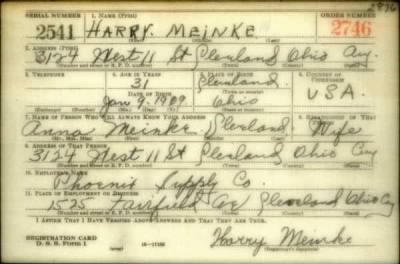 2746
SERIAL NUMBER 1. NAME (Print) ORDER NUMBER
2541 HARRY MEINKE 2746
2. ADDRESS (Print)
3124 West 11 St Cleveland Ohio Cuy
3. TELEPHONE 4. AGE IN YEARS 5. PLACE OF BIRTH 6. COUNTRY OF CITIZENSHIP
31 Cleveland
DATE OF BIRTH
Jan 9-1909 Ohio U.S.A.
7. NAME OF PERSON WHO WILL ALWAYS KNOW YOUR ADDRESS 8. RELATIONSHIP OF THAT PERSON
Anna Meinke Cleveland Wife
9. ADDRESS OF THAT PERSON
3124 West 11 St Cleveland Ohio Cuy
10. EMPLOYER'S NAME
Phoenix Supply Co.
11. PLACE OF EMPLOYMENT OR BUSINESS
1525 Fairfield Ave Cleveland Ohio Cuy
I AFFIRM THAT I HAVE VERIFIED ABOVE ANSWERS AND THAT THEY ARE TRUE.
REGISTRATION CARD
D. S. S. Form 1 Harry Meinke
(Registrant's signature)